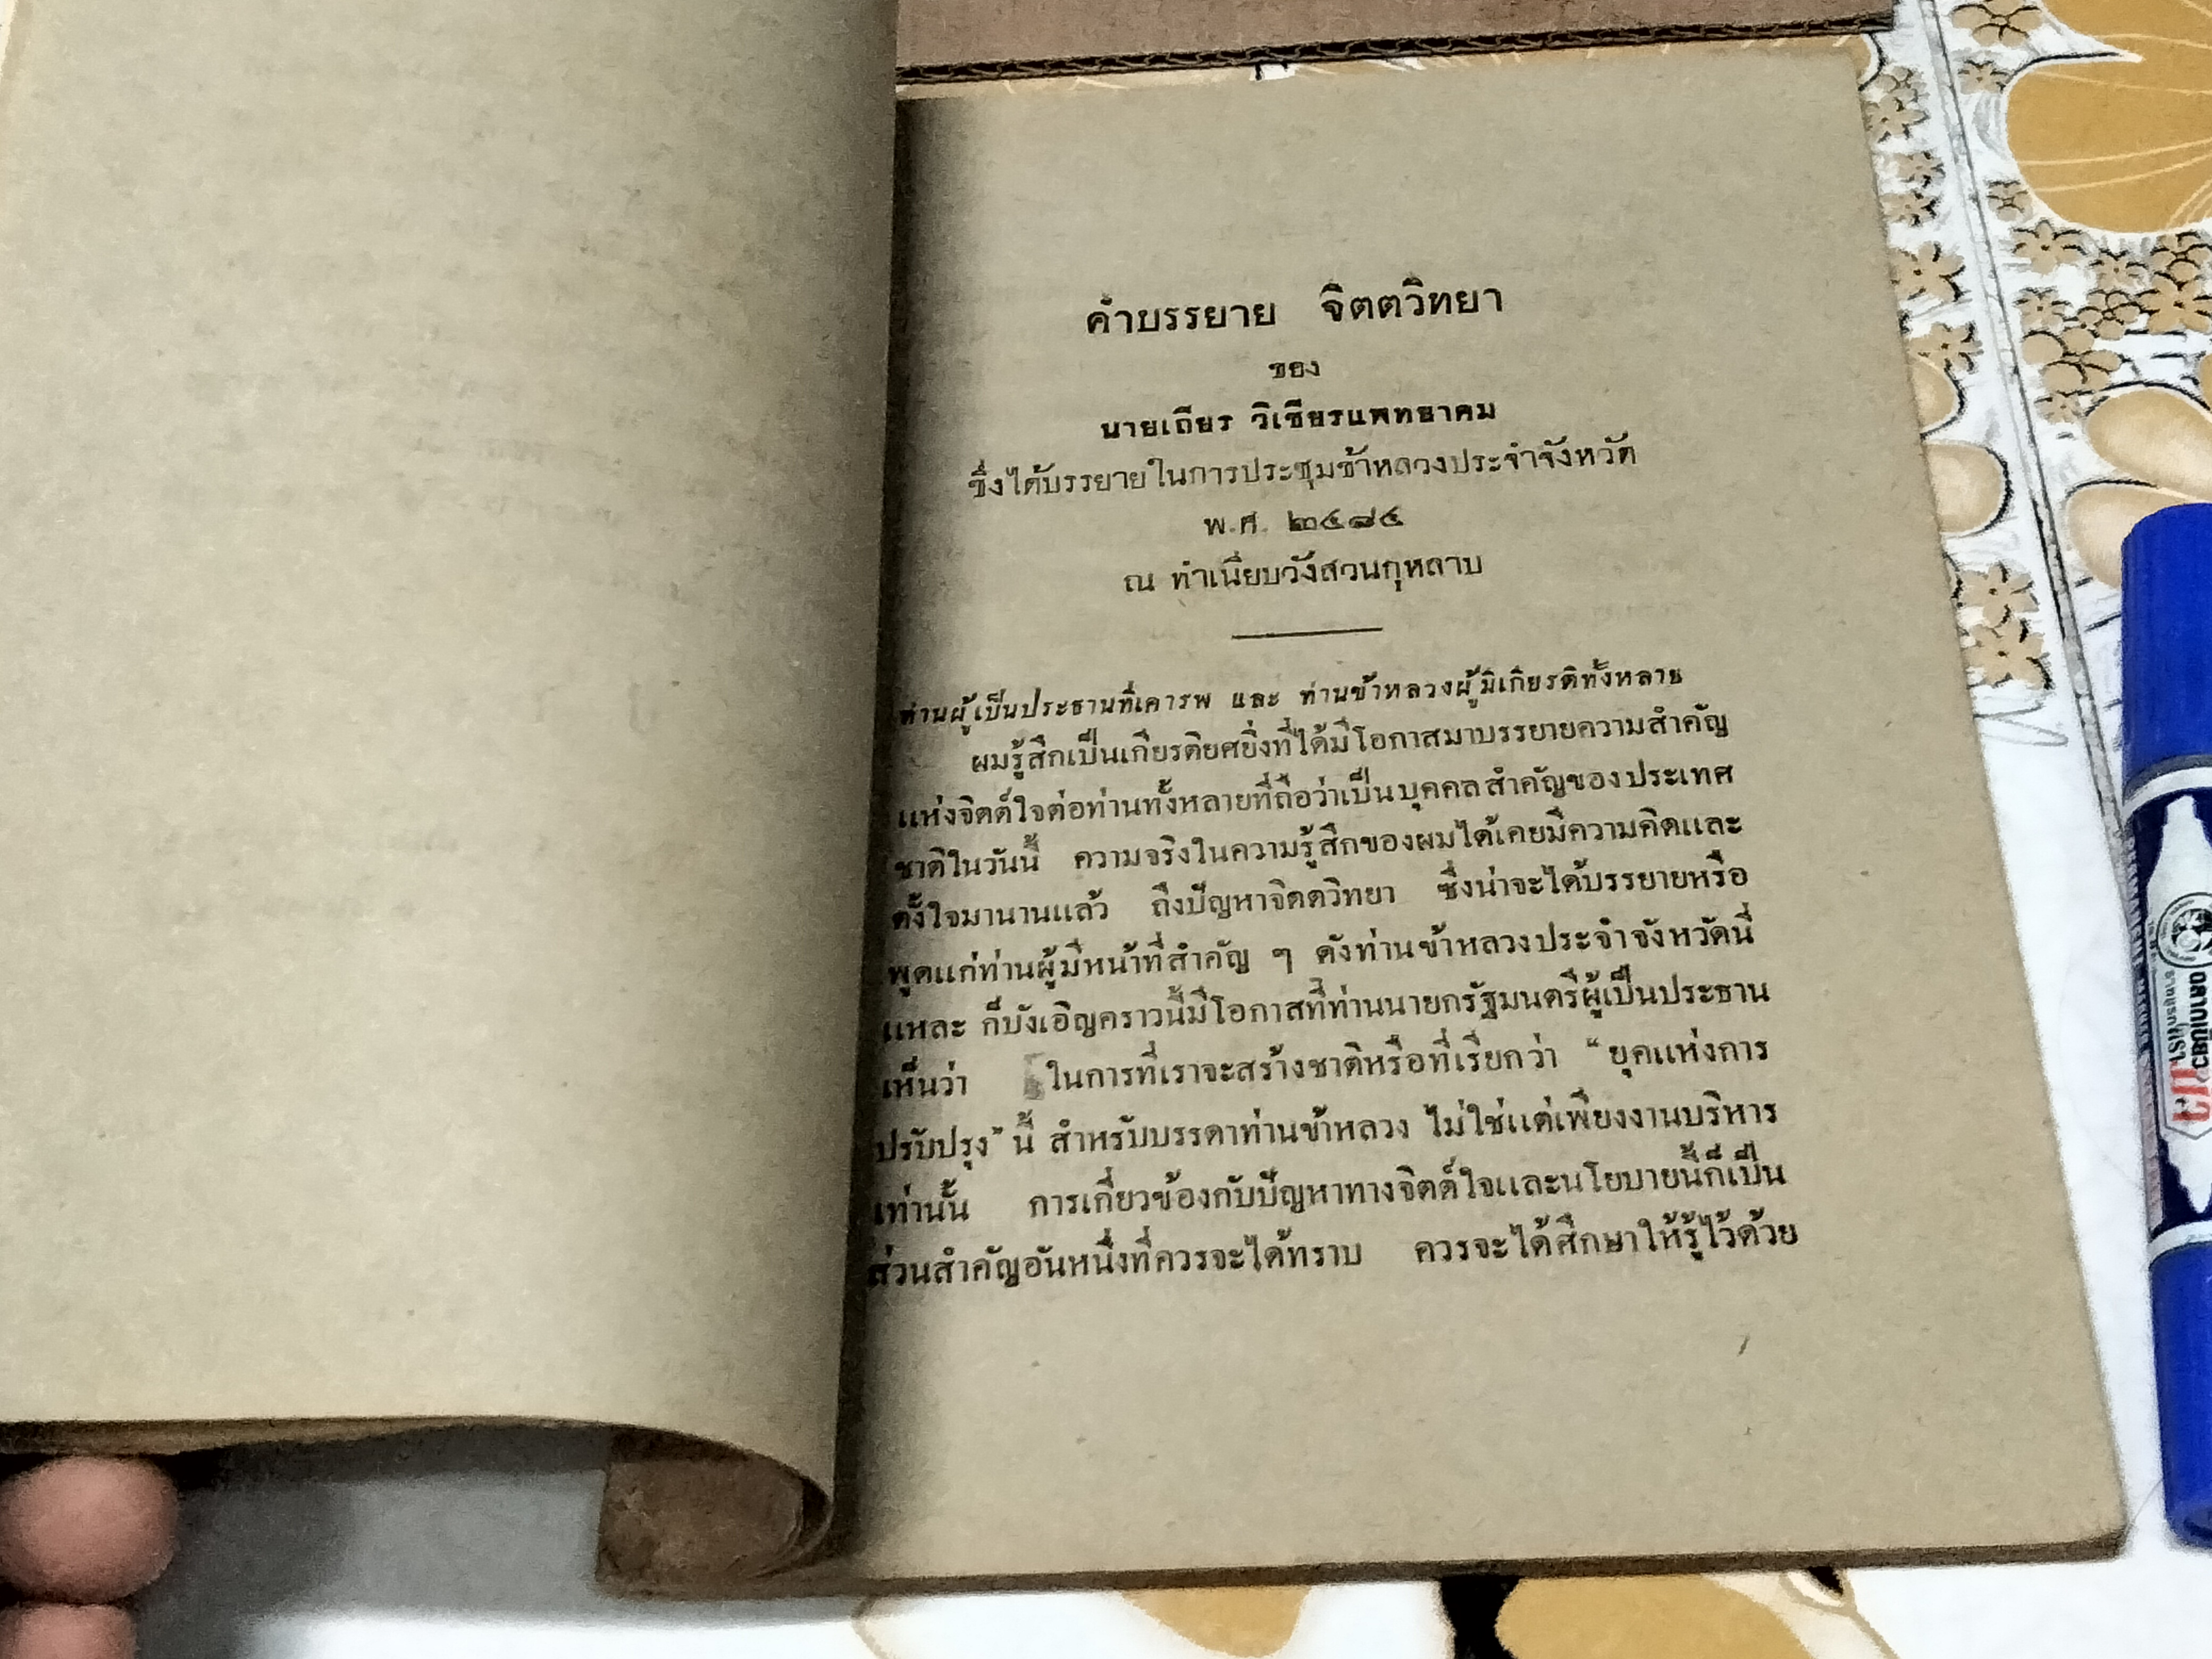 คำบรรยาย จิตตวิทยา
ของ
นายเถียร วิเชียรแพทยาคม
ซึ่งได้บรรยายในการประชุมข้าหลวงประจำจังหวัด
พ.ศ. ๒๔๘๔
ณ ทำเนียบวังสวนกุหลาบ
ท่านผู้เป็นประธานที่เคารพ และ ท่านข้าหลวงผู้มีเกียรติทั้งหลาย
ผมรู้สึกเป็นเกียรติยศยิ่งที่ได้มีโอกาสมาบรรยายความสำคัญ
แห่งจิตต์ใจต่อท่านทั้งหลายที่ถือว่าเป็นบุคคลสำคัญของประเทศ
ชาติในวันนี้ ความจริงในความรู้สึกของผมได้เคยมีความคิดและ
ตั้งใจมานานแล้ว ถึงปัญหาจิตตวิทยา ซึ่งน่าจะได้บรรยายหรือ
พูดแก่ท่านผู้มีหน้าที่สำคัญ ๆ ดังท่านข้าหลวงประจำจังหวัดนี้
แหละ ก็บังเอิญคราวนี้มีโอกาสที่ท่านนายกรัฐมนตรีผู้เป็นประธาน
เห็นว่า ในการที่เราจะสร้างชาติหรือที่เรียกว่า “ยุคแห่งการ
ปรับปรุง” นี้ สำหรับบรรดาท่านข้าหลวง ไม่ใช่แต่เพียงงานบริหาร
เท่านั้น การเกี่ยวข้องกับปัญหาทางจิตต์ใจและนโยบายนี้ก็เป็น
ส่วนสำคัญอันหนึ่งที่ควรจะได้ทราบ ควรจะได้ศึกษาให้รู้ไว้ด้วย
ฉลากเขียว